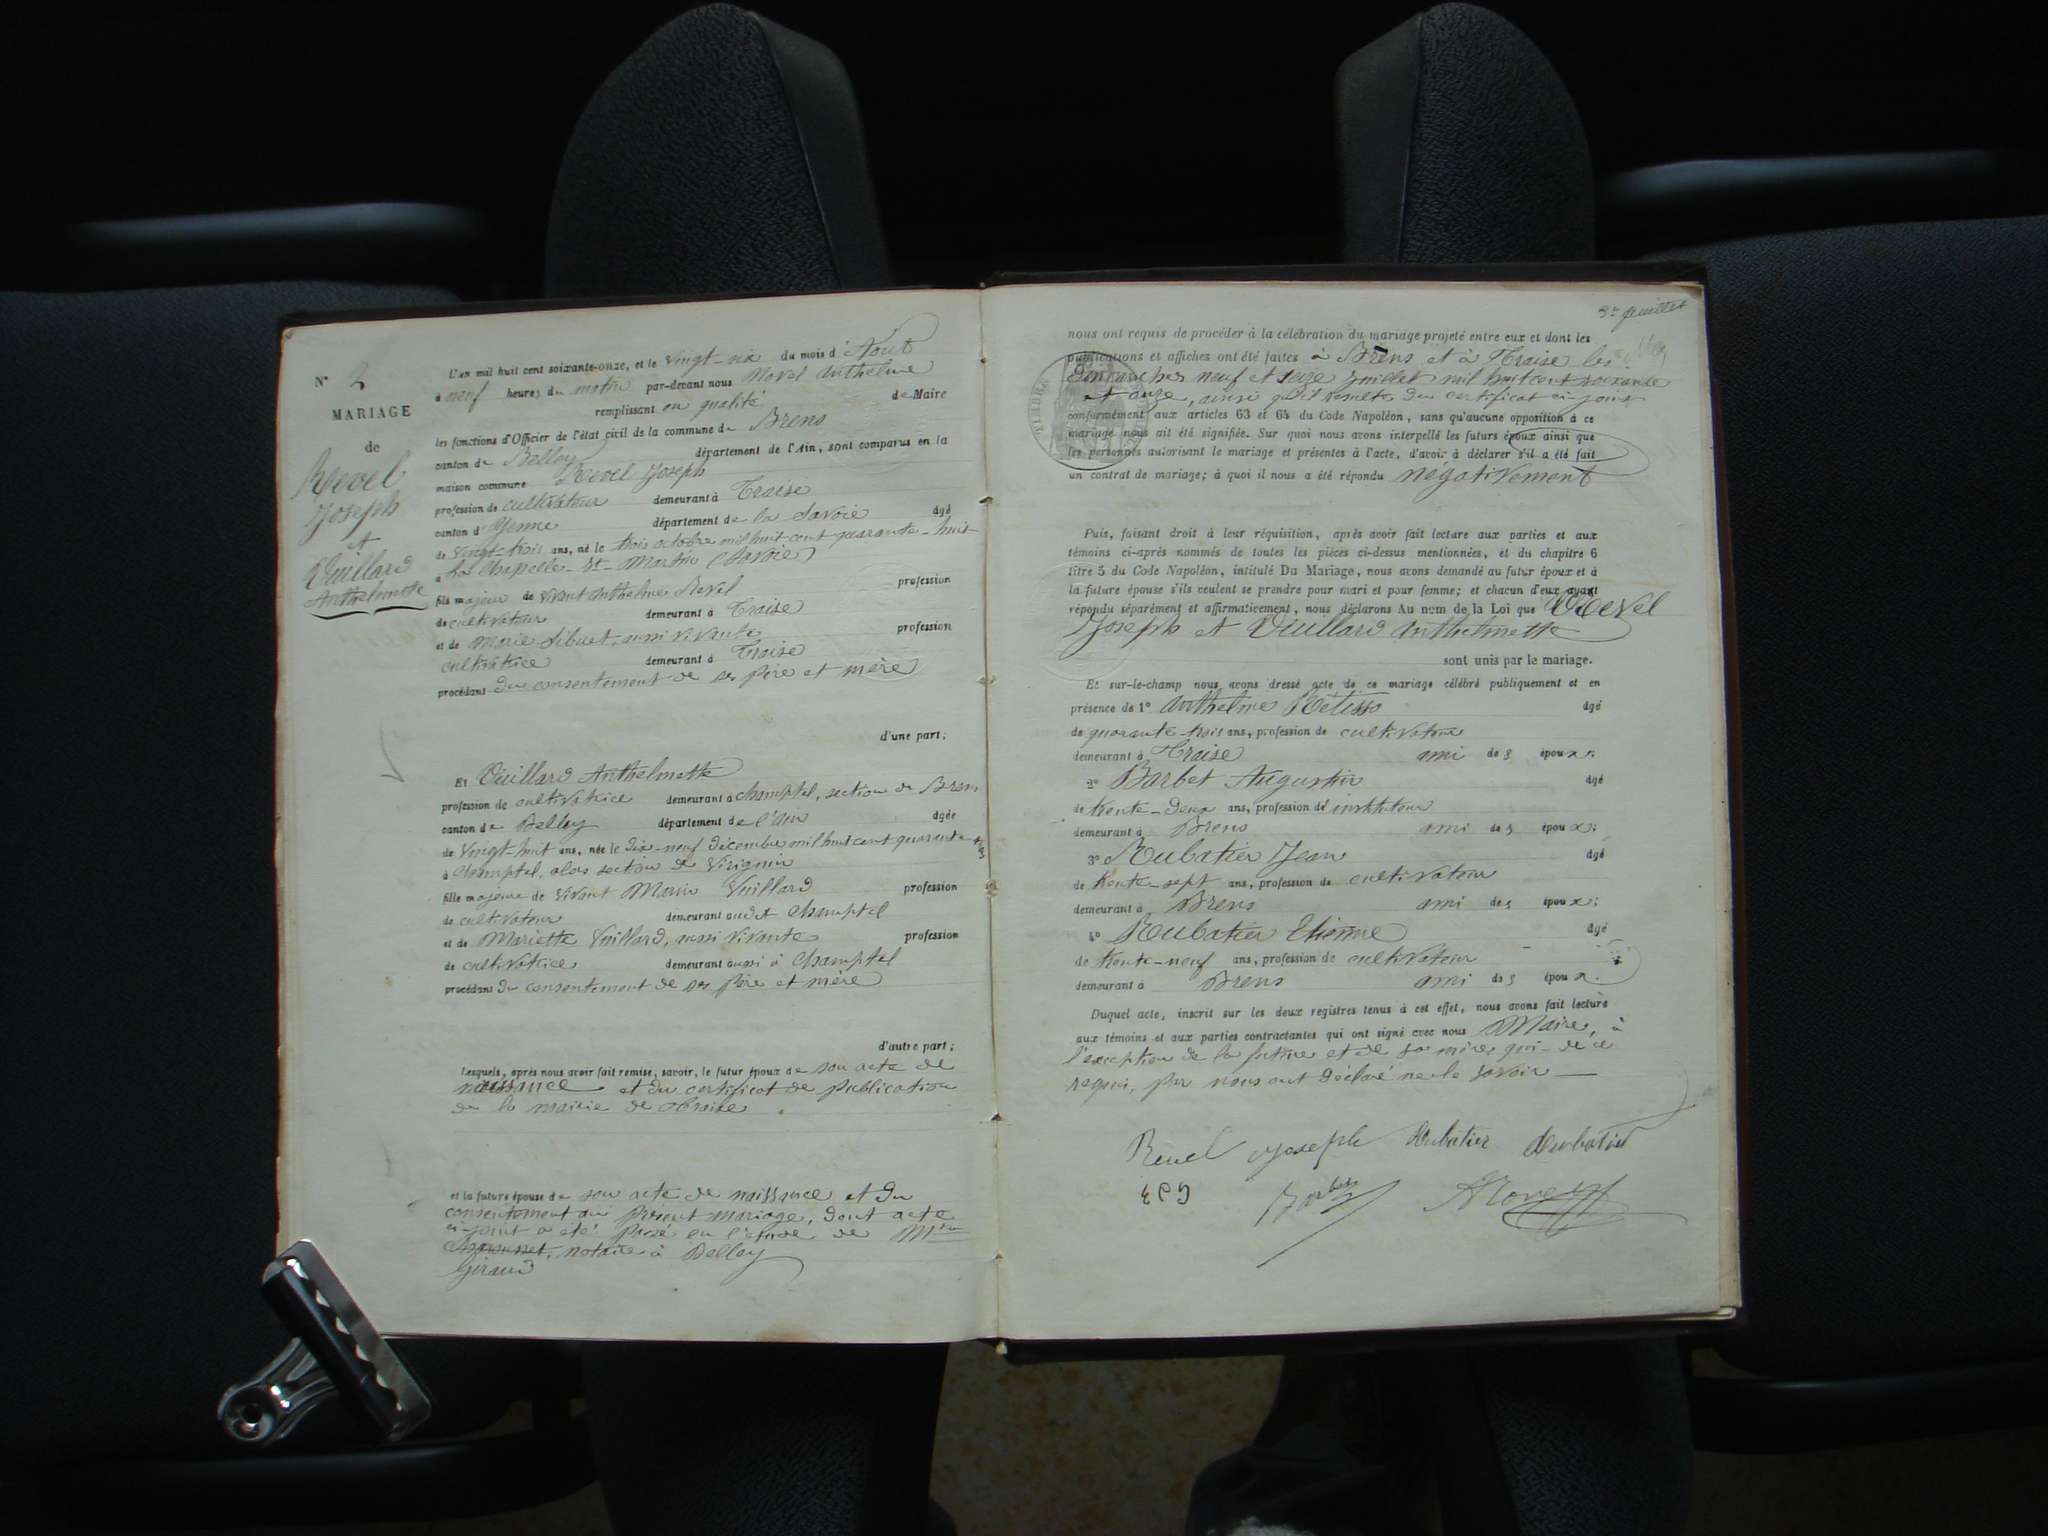 N° 2
MARIAGE
de
Revel
Joseph
et
Vuillard
Anthelmette
L'an mil huit cent soixante-onze, et le vingt-six du mois d'Aout
à neuf heures du matin par-devant nous Novel Anthelme
remplissant en qualité de Maire
les fonctions d'Officier de l'état civil de la commune de Brens
canton de Belley département de l'Ain, sont comparus en la
maison commune Revel Joseph
profession de cultivateur demeurant à Traize
canton d'Yenne département de la Savoie âgé
de vingt-trois ans, né le trois octobre mil huit cent quarante-huit
à La Chapelle-St-Martin (Savoie)
fils majeur de vivant Anthelme Revel profession
de cultivateur demeurant à Traise
et de Marie Sibuet, aussi vivante profession
cultivatrice demeurant à Traise
procédant du consentement de ses père et mère
d'une part;
Et Vuillard Anthelmette
profession de cultivatrice demeurant à Champtel, section de Brens
canton de Belley département de l'Ain âgée
de vingt-huit ans, née le dix-neuf décembre mil huit cent quarante
à Champtel, alors section de Virignin
fille majeure de vivant Marin Vuillard profession
de cultivateur demeurant audit Champtel
et de Mariette Vuillard, aussi vivante profession
de cultivatrice demeurant aussi à Champtel
procédant du consentement de ses père et mère
d'autre part;
Lesquels, après nous avoir fait remise, savoir, le futur époux de son acte de
naissance et du certificat de publication
de la mairie de Traise
et la future épouse de son acte de naissance et du
consentement au présent mariage, dont acte
ci-joint a été passé en l'étude de Mtre
notaire à Belley
Giraud
3e juillet
nous ont requis de procéder à la célébration du mariage projeté entre eux et dont les
publications et affiches ont été faites à Brens et à Traise les
dimanches neuf et seize Juillet mil huit cent soixante
et onze, ainsi qu'il résulte du certificat ci-joint
conformément aux articles 63 et 64 du Code Napoléon, sans qu'aucune opposition à ce
mariage nous ait été signifiée. Sur quoi nous avons interpellé les futurs époux ainsi que
les personnes autorisant le mariage et présentes à l'acte, d'avoir à déclarer s'il a été fait
un contrat de mariage; à quoi il nous a été répondu négativement
Puis, faisant droit à leur réquisition, après avoir fait lecture aux parties et aux
témoins ci-après nommés de toutes les pièces ci-dessus mentionnées, et du chapitre 6
titre 5 du Code Napoléon, intitulé Du Mariage, nous avons demandé au futur époux et à
la future épouse s'ils veulent se prendre pour mari et pour femme; et chacun d'eux ayant
répondu séparément et affirmativement, nous déclarons Au nom de la Loi que Revel
Joseph et Vuillard Anthelmette
sont unis par le mariage.
Et sur-le-champ nous avons dressé acte de ce mariage célébré publiquement et en
présence de 1° Anthelme âgé
de quarante-trois ans, profession de cultivateur
demeurant à Traise ami des époux;
2° Barbet Augustin âgé
de trente-deux ans, profession d'instituteur
demeurant à Brens ami des époux;
3° Rubatier Jean âgé
de trente-sept ans, profession de cultivateur
demeurant à Brens ami des époux;
4° Rubatier Etienne âgé
de trente-neuf ans, profession de cultivateur
demeurant à Brens ami des époux.
Duquel acte, inscrit sur les deux registres tenus à cet effet, nous avons fait lecture
aux témoins et aux parties contractantes qui ont signé avec nous Maire, à
l'exception de la future et de sa mère, qui de ce
requis, par nous ont déclaré ne le savoir
Revel Joseph Rubatier Rubatier